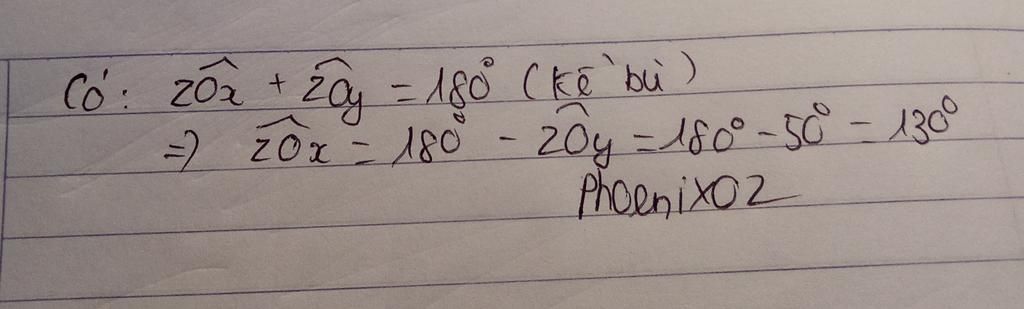 Có: zOx + zOy = 180° (kề bù)
=> zOx = 180° - zOy = 180° - 50° = 130°
PhoenixO2